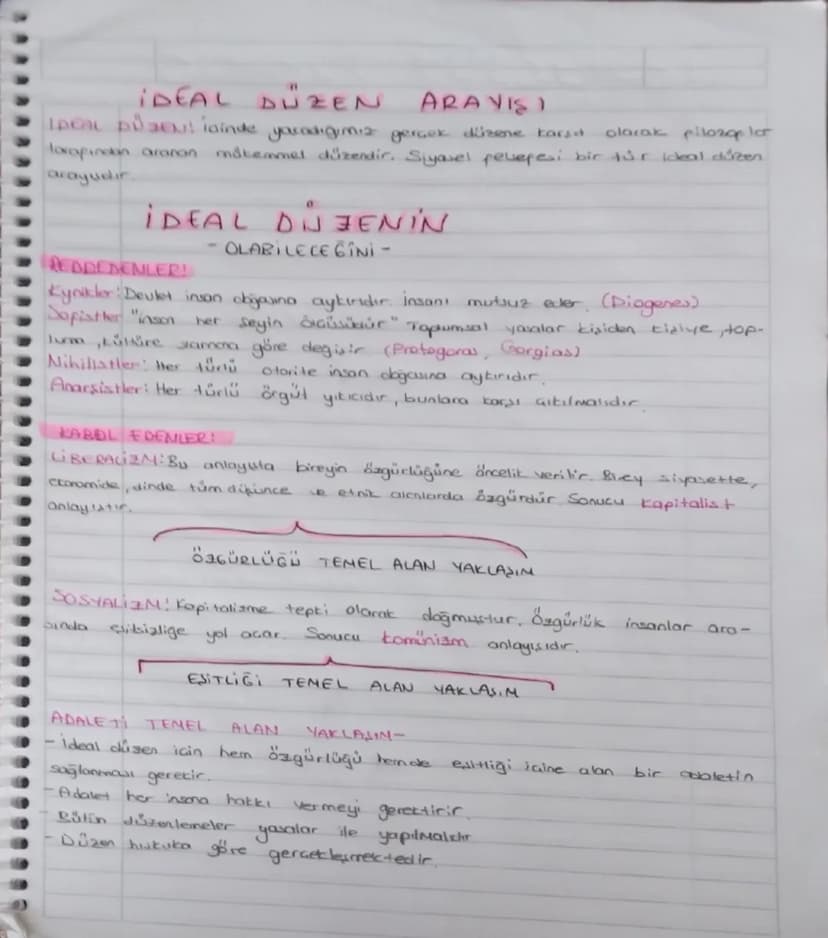 İDEAL DÜZEN ARAYIŞI
İDEAL DÜZEN: içinde yaşadığımız gerçek düzene karşıt olarak filozoflar
tarafından aranan mükemmel düzendir. Siyaset felsefesi bir tür ideal düzen
arayışıdır.
İDEAL DÜZENİN
- OLABİLECEĞİNİ -
REDDEDENLER!
Kynikler: Devlet insan doğasına aykırıdır. İnsanı mutsuz eder. (Diogenes)
Sofistler "insan her şeyin ölçüsüdür" Toplumsal yasalar kişiden kişiye, top-
luma, kültüre zamana göre değişir (Protagoras, Gorgias)
Nihilistler: Her türlü otorite insan doğasına aykırıdır.
Anarşistler: Her türlü örgüt yıkıcıdır, bunlara karşı çıkılmalıdır.
KABUL EDENLER!
LİBERALİZM: Bu anlayışta bireyin özgürlüğüne öncelik verilir. Birey siyasette,
ekonomide, dinde tüm düşünce ve etnik alanlarda özgürdür Sonucu kapitalist
anlayıştır.
ÖZGÜRLÜĞÜ TEMEL ALAN YAKLAŞIM
SOSYALİZM: Kapitalizme tepki olarak doğmuştur. Özgürlük insanlar ara-
sında eşitsizliğe yol açar. Sonucu komünizm anlayışıdır.
EŞİTLİĞİ TEMEL ALAN YAKLAŞIM
ADALETİ TEMEL ALAN YAKLAŞIM-
- İdeal düzen için hem özgürlüğü hemde eşitliği içine alan bir adaletin
sağlanması gerekir.
- Adalet her insana hakkı vermeyi gerektirir.
- Bütün düzenlemeler yasalar ile yapılmalıdır
- Düzen hukuka göre gerçekleşmektedir.